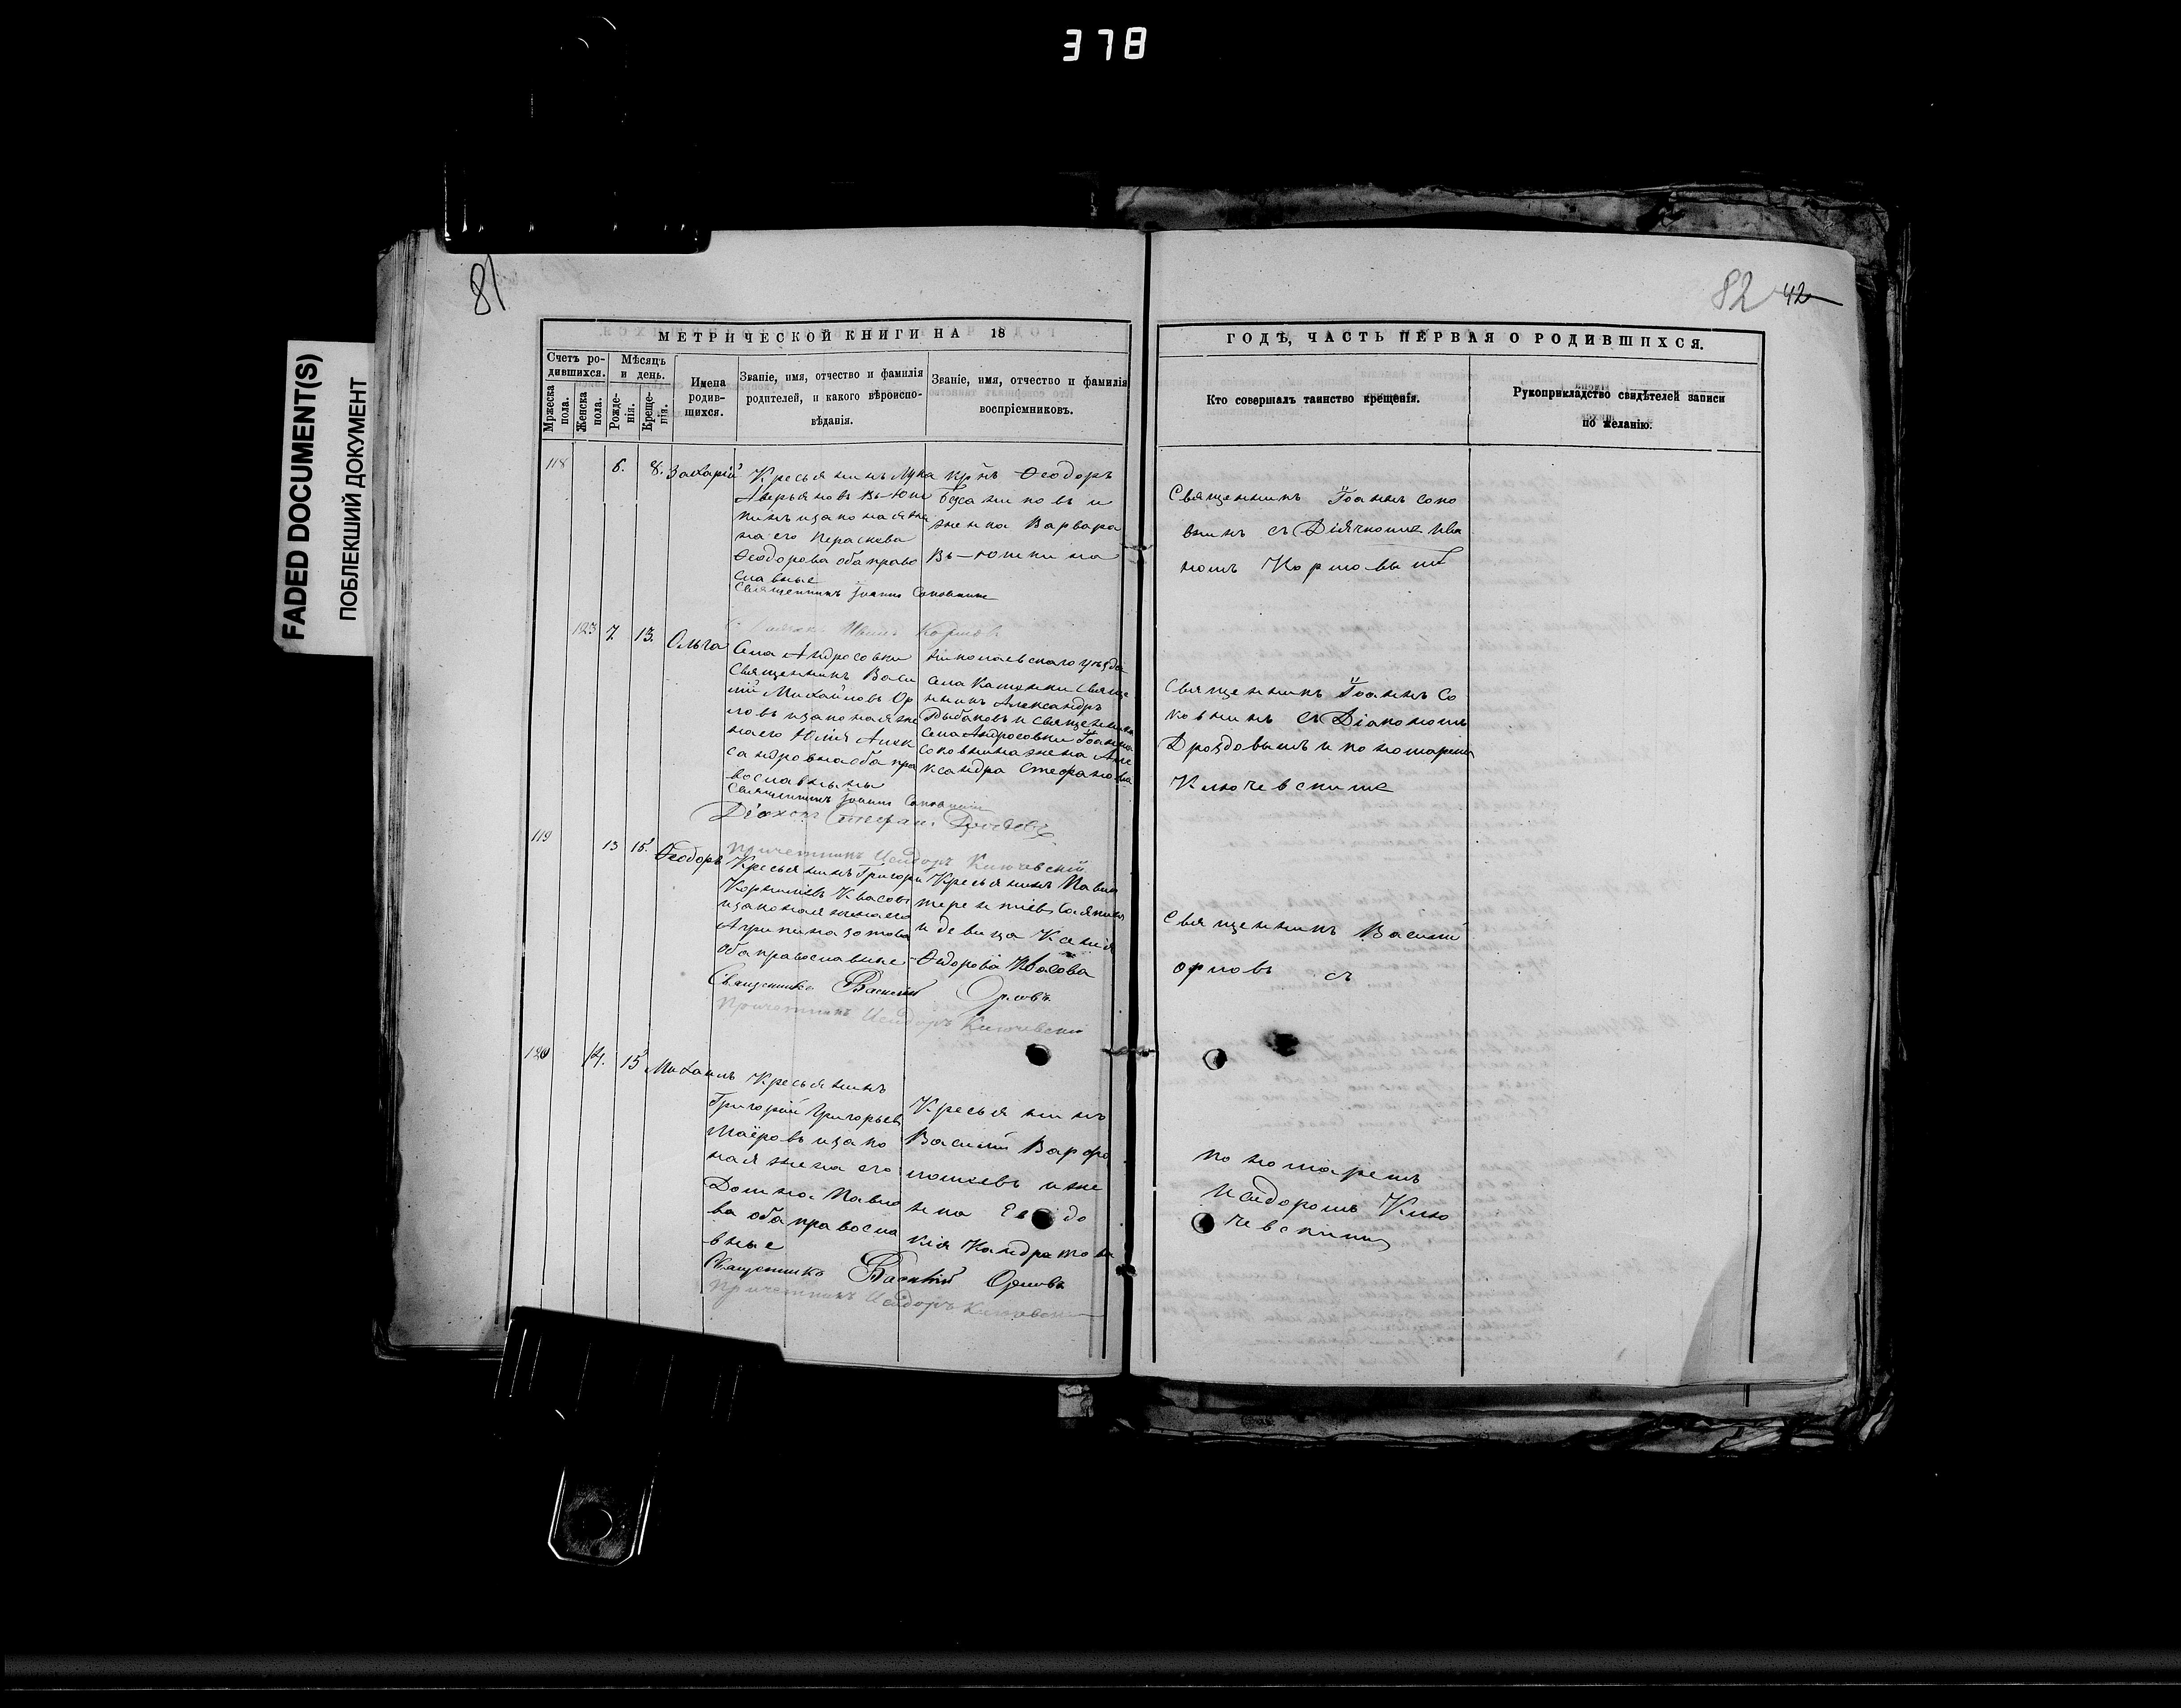 378
FADED DOCUMENT(S)
ПОБЛЕКШИЙ ДОКУМЕНТ
81
МЕТРИЧЕСКОЙ КНИГИ НА 18
Счетъ ро-
дившихся.
Мѣсяцъ
и день.
Мржеска
пола.
Женска
пола.
Рожде-
нія.
Креще-
нія.
Имена
родив-
шихся.
Званіе, имя, отчество и фамилія
родителей, и какого вѣроиспо-
вѣданія.
Званіе, имя, отчество и фамилія
воспріемниковъ.
118
6.
8.
Захарій
Крестьянинъ Лука
Аверьяновъ Вь-юш
кинъ изаконная же
на его Параскева
Ѳеодорова оба право
славные
Священникъ Іоаннъ Соковнинъ
Иванъ Кормовъ
крнъ Ѳеодоръ
новъ и
женка Варвара
Вь-юшкина
123
7
13.
Ольга
Села Андросовки
Священникъ Васи
лій Михайловъ Ор
ловъ изаконная же
на его Юлія Алек
сандровна оба пра
вославныны
Священникъ Іоаннъ Соковнинъ
Діаконъ Стефанъ Дроздовъ
Причетникъ Исидоръ Ключевскій
Николаевскаго уѣзда
села Каменки Свяще
нникъ Александръ
Рыбаковъ и священника
села Андросовки Іоанна
Соковнина жена Але
ксандра Стефановна
119
13
15.
Ѳеодоръ
Крестьянинъ Григорій
Корниліевъ Квасовъ
изаконная жена его
Агрипина Зотова
оба православные
Священникъ Василій Орловъ
Причетникъ Исидоръ Ключевскій
Крестьянинъ Павелъ
терентіевъ
и девица Ксенія
Ѳедорова Квасова
120
14.
15
Михаилъ
Крестьянинъ
Григорій Григорьевъ
Маёровъ изако
нная жена его
Домна Павло
ва оба правосла
вные
Священникъ Василій Орловъ
Причетникъ Исидоръ Ключевскій
Крестьянинъ
Василій Варфо
ломеевъ и же
нка до
кія Кандратова
82 42
ГОДЪ, ЧАСТЬ ПЕРВАЯ О РОДИВШИХСЯ.
Кто совершалъ таинство крещенія.
Рукоприкладство свидѣтелей записи
по желанію.
Священникъ Іоаннъ Соко
внинъ съ Діячкомъ Ива
номъ Кормовымъ
Священникъ Іоаннъ Со
ковнинъ съ Діакономъ
Дроздовымъ и пономаремъ
Ключевскимъ
Священникъ Василій
орловъ съ
пономаремъ
Исидоромъ Клю
чевскимъ